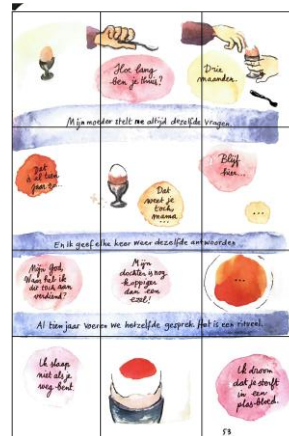 Hoe lang
ben je thuis?
Drie
maanden.
Mijn moeder stelt me altijd dezelfde vragen
Dat
is al tien
jaar zo...
Dat
weet je
toch,
mama...
Blijf
hier...
...
En ik geef elke keer weer dezelfde antwoorden
Mijn God,
Waar heb ik
dit toch aan
verdiend?
Mijn
dochter is nog
koppiger
dan een
ezel!
...
Al tien jaar voeren we hetzelfde gesprek. Het is een ritueel.
Ik slaap
niet als je
weg bent.
Ik droom
dat je sterft
in een
plas bloed.
53